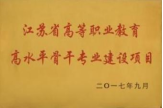 江苏省高等职业教育
高水平骨干专业建设项目
二〇一七年九月